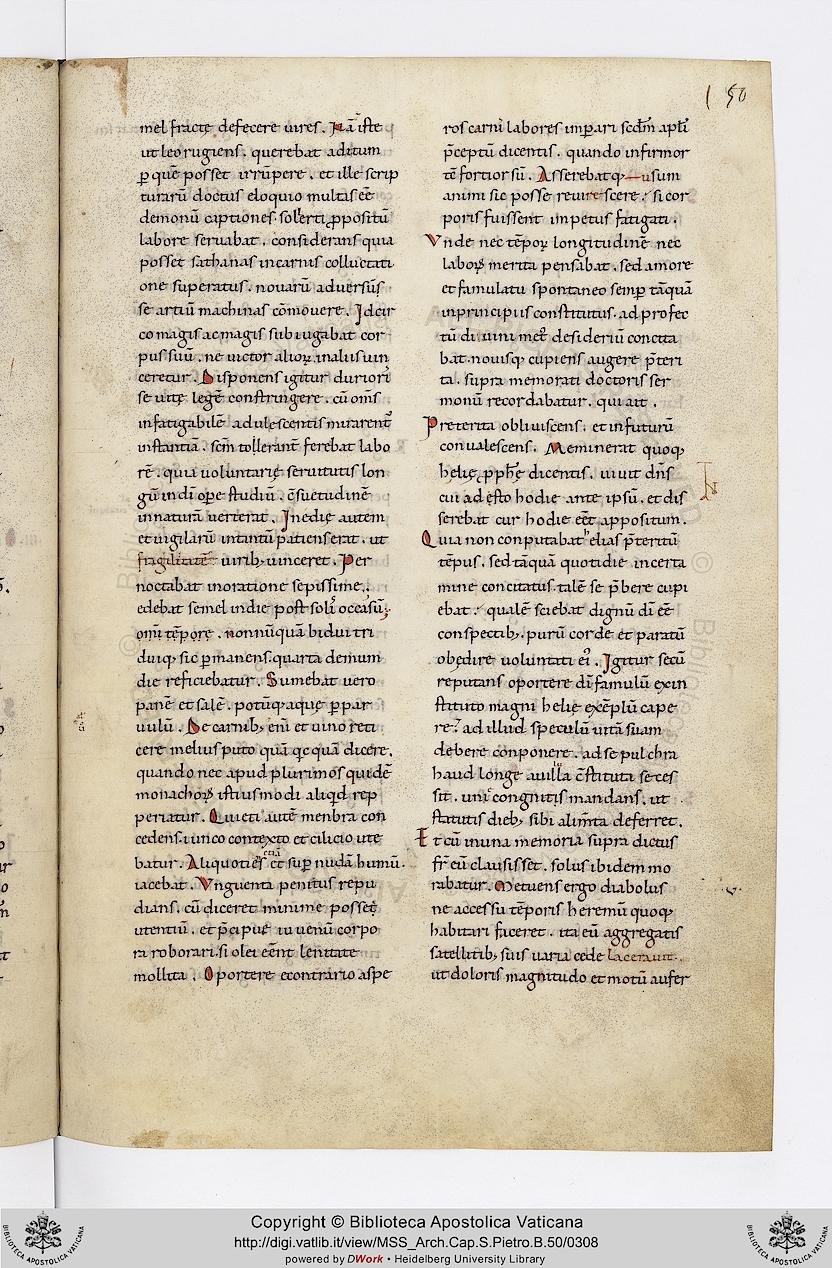 150
mel fractę defecere uires. Nā iste
ut leo rugiens. querebat aditum
ꝑ quē posset irrūpere. et ille scrip
turarū doctus eloquio multas eē
demonū captiones. solerti ꝓpositū
labore seruabat. considerans quia
posset sathanas in carnis colluctati
one superatus. nouarū aduersūs
se artiū machinas cōmouere. Idcir
co magis ac magis subiugabat cor
pus suū. ne uictor alioꝝ in aliis uin
ceretur. Disponens igitur duriori
se uitę legē constringere. cū om̄s
infatigabilē adulescentis mirarent᷑
instantiā. sc̄m tollerant ferebat labo
rē. quia uoluntarię seruitutis lon
gū in di ope studiū. c̄suetudinē
in naturā uerterat. Inedię autem
et uigilarū in tantū patiens erat. ut
fragilitatē uirib; uinceret. Per
noctabat in oratione sepissime.
edebat semel in die post solis occasū.
om̄i tēpore. nonnūquā bidui tri
duiq; sic ꝑmanens. quarta demum
die reficiebatur. Sumebat uero
panē et salē. potūq; aquę ꝑpar
uulū. De carnib; eni et uino reti
cere melius puto quā qc quā dicere.
quando nec apud plurimos quidē
monachoꝝ istiusmodi aliqd rep
periatur. Quieti autē menbra con
cedens. iunco contexto et cilicio ute
batur. Aliquoties etiā et sup nudā humū.
iacebat. Vnguenta penitus repu
dians. cū diceret minime posset
utentiū. et p̄cipue iuuenū corpo
ra roborari. si olei eēnt lenitate
mollita. Oportere econtrario aspe
ros carni labores imꝑari scdm̄ apl̄i
p̄ceptū dicentis. quando infirmor
tē fortior sū. Asserebatq; usum
animi sic posse reuirescere. si cor
poris fuissent impetus fatigati.
Vnde nec tēpoꝝ longitudinē nec
laboꝝ merita pensabat. sed amore
et famulatu spontaneo semꝑ tāquā
in principiis constitutus. ad profec
tū diuini met᷑ desideriū concita
bat. nouisq; cupiens augere p̄teri
ta. supra memorati doctoris ser
monū recordabatur. qui ait.
Preterita obliuiscens. et in futurū
conualescens. Meminerat quoq;
helię ꝓphę̄ dicentis. uiuit dn̄s
cui adęsto hodie ante ipsū. et dis
serebat cur hodie eēt appositum.
Quia non conputabat helias p̄teritū
tēpus. sed tāquā quotidie in certa
mine concitatus. talē se p̄bere cupi
ebat. qualē sciebat dignū di eē
conspectib; purū corde et paratū
obędire uoluntati ei᷒. Igitur secū
reputans oportere di famulū ex in
stituto magni helię exēplū cape
re. ad illud speculū uitā suam
debere conponere. ad sepulchra
haud longe a uilla c̄stituta seces
sit. uni congnitis mandans. ut
statutis dieb; sibi alim̄ta deferret.
Et cū in una memoria supra dictus
fr̄ eū clausisset. solus ibidem mo
rabatur. Metuens ergo diabolus
ne accessu tēporis heremū quoq;
habitari faceret. ita eū aggregatis
satellitib; suis uaria cede lacerauit.
ut doloris magnitudo et motū aufer
Copyright © Biblioteca Apostolica Vaticana
http://digi.vatlib.it/view/MSS_Arch.Cap.S.Pietro.B.50/0308
powered by DWork • Heidelberg University Library